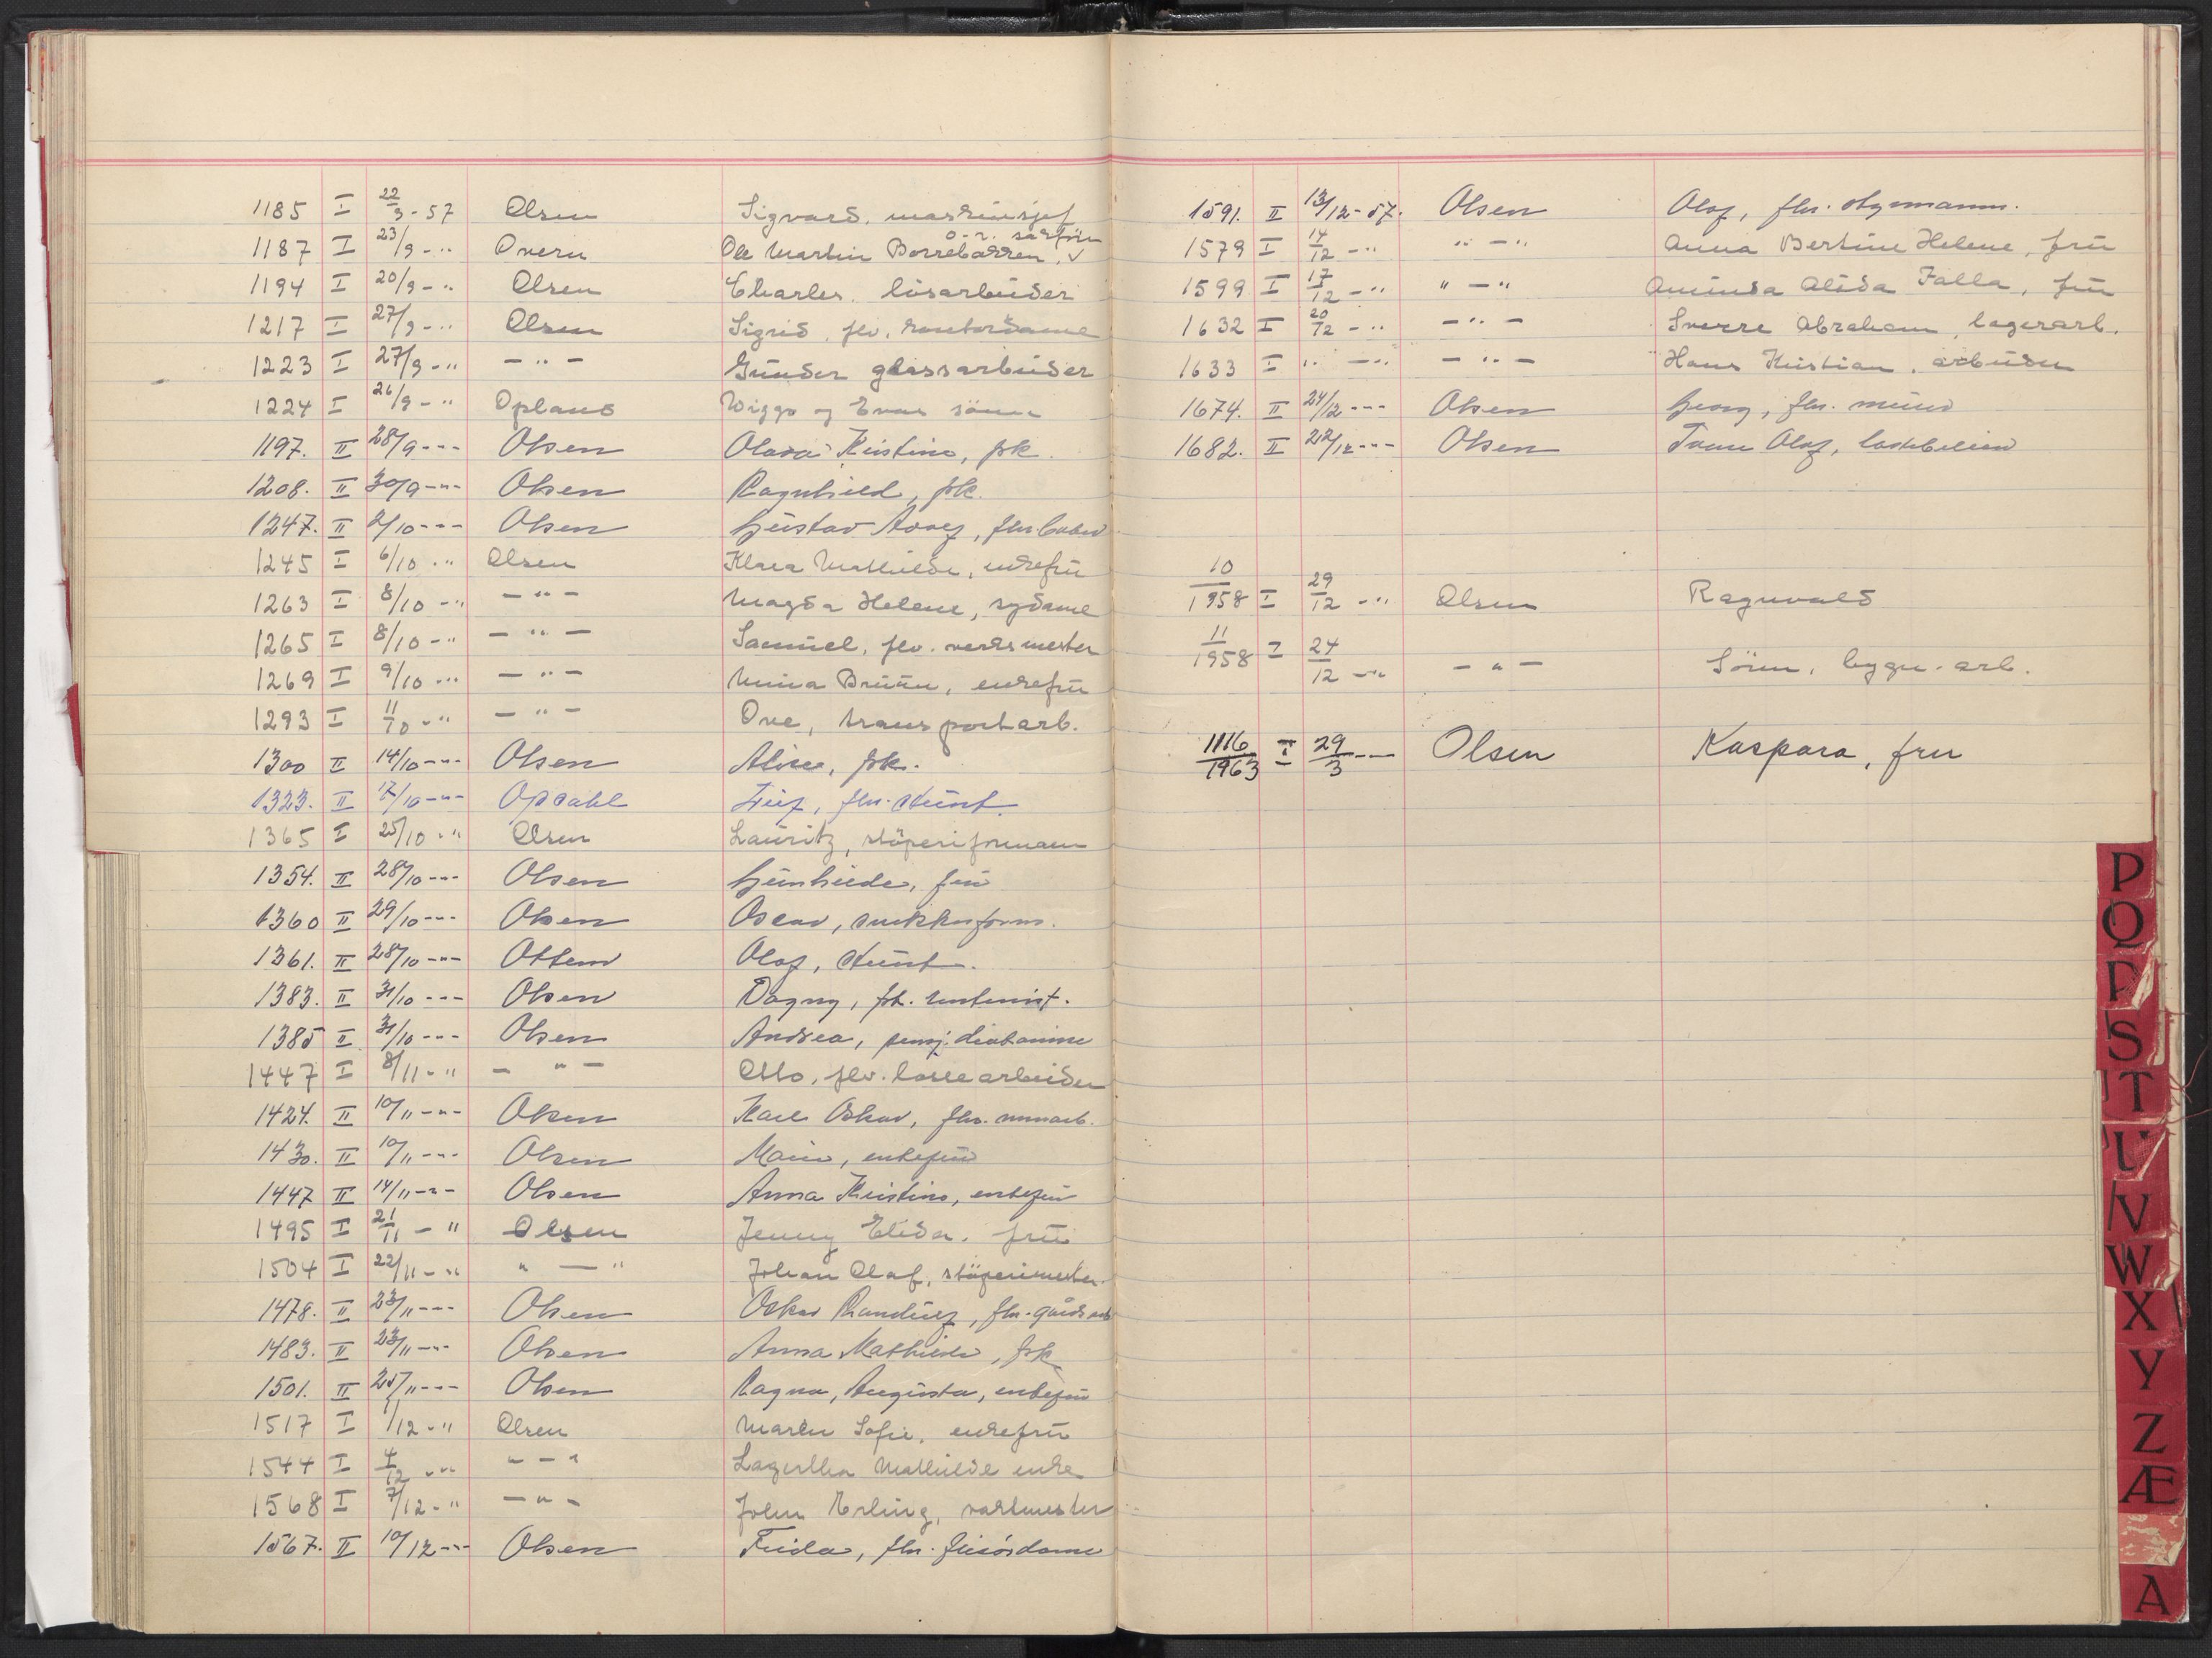 1185 I 22/9-57 Olsen Sigvard, maskinsjef
o.r. sakfører
1187 I 23/9-" Overn Ole Martin Borrebakken, v
1194 I 20/9-" Olsen Charles, løsarbeider
1217 I 27/9-" Olsen Sigrid, flv. kontordame
1223 I 27/9-" -"- Gunder glassarbeider
1224 I 26/9-" Opland Wiggo og Enar sønn
1197. II 28/9-"- Olsen Olava Kristine, frk.
1208. II 30/9-"- Olsen Ragnhild, frk.
1247. II 2/10-"- Olsen Gustav Adolf, fhv.
1245 I 6/10-" Olsen Klara Mathilde, enkefru
1263 I 8/10-" -"- Magda Helene, sydame
1265 I 8/10-" -"- Samuel, flv. verksmester
1269 I 9/10-" -"- Minia Bruun, enkefru
1293 I 11/10-" -"- Ove, transportarb.
1300 II 14/10-"- Olsen Alise, frk.
1323. II 17/10-"- Opdahl Leif, fhv.
1365 I 25/10-" Olsen Lauritz, støperiformann
1354. II 28/10-"- Olsen Gunhilde, fru
1360 II 29/10-"- Olsen Oscar, snekkerform.
1361. II 28/10-"- Ottem Olaf,
1383. II 31/10-"- Olsen Dagny, frk.
1385 II 31/10-"- Olsen Andrea, pensj.
1447 I 8/11-" -"- Otto, flv. lossearbeider
1424. II 10/11-"- Olsen Karl Oskar, fhv. murarb.
1430. II 10/11-"- Olsen Marie, enkefru
1447 II 14/11-"- Olsen Anna Kristine, enkefru
1495 I 21/11-" Olsen Jenny Elida, fru
1504 I 22/11-" "-" Johan Olaf, støperimester.
1478. II 23/11-"- Olsen Oskar Randulf, fhv. gårdsarb
1483. II 23/11-"- Olsen Anna Mathilde, frk
1501. II 25/11-"- Olsen Ragna, Augusta, enkefru
1517 I 1/12-" Olsen Maren Sofie, enkefru
1544 I 4/12-" "-" Lagertha Mathilde enke
1568 I 7/12-" -"- John Erling, vaktmester
1567. II 10/12-"- Olsen Frida, fhv. frisørdame
1591. II 13/12-57. Olsen Olaf, fhv. styrmann.
1579 I 14/12-" "-" Anna Bertine Helene, fru
1599 I 17/12-" "-" Aminda Alida Falla, fru
1632 I 20/12-" -"- Sverre Abraham, lagerarb.
1633 I "-" -"- Hans Kristian, arbeider
1674. II 24/12-"- Olsen Georg, fhv. murer
1682. II 22/12-"- Olsen Olaf, lastebileier
10/1958 I 29/12-" Olsen Ragnvald
11/1958 I 24/12-" -"- Søren, bygn.arb.
1116/1963 I 29/3-- Olsen Kaspara, fru
P
Q
R
S
T
U
V
W
X
Y
Z
Æ
A